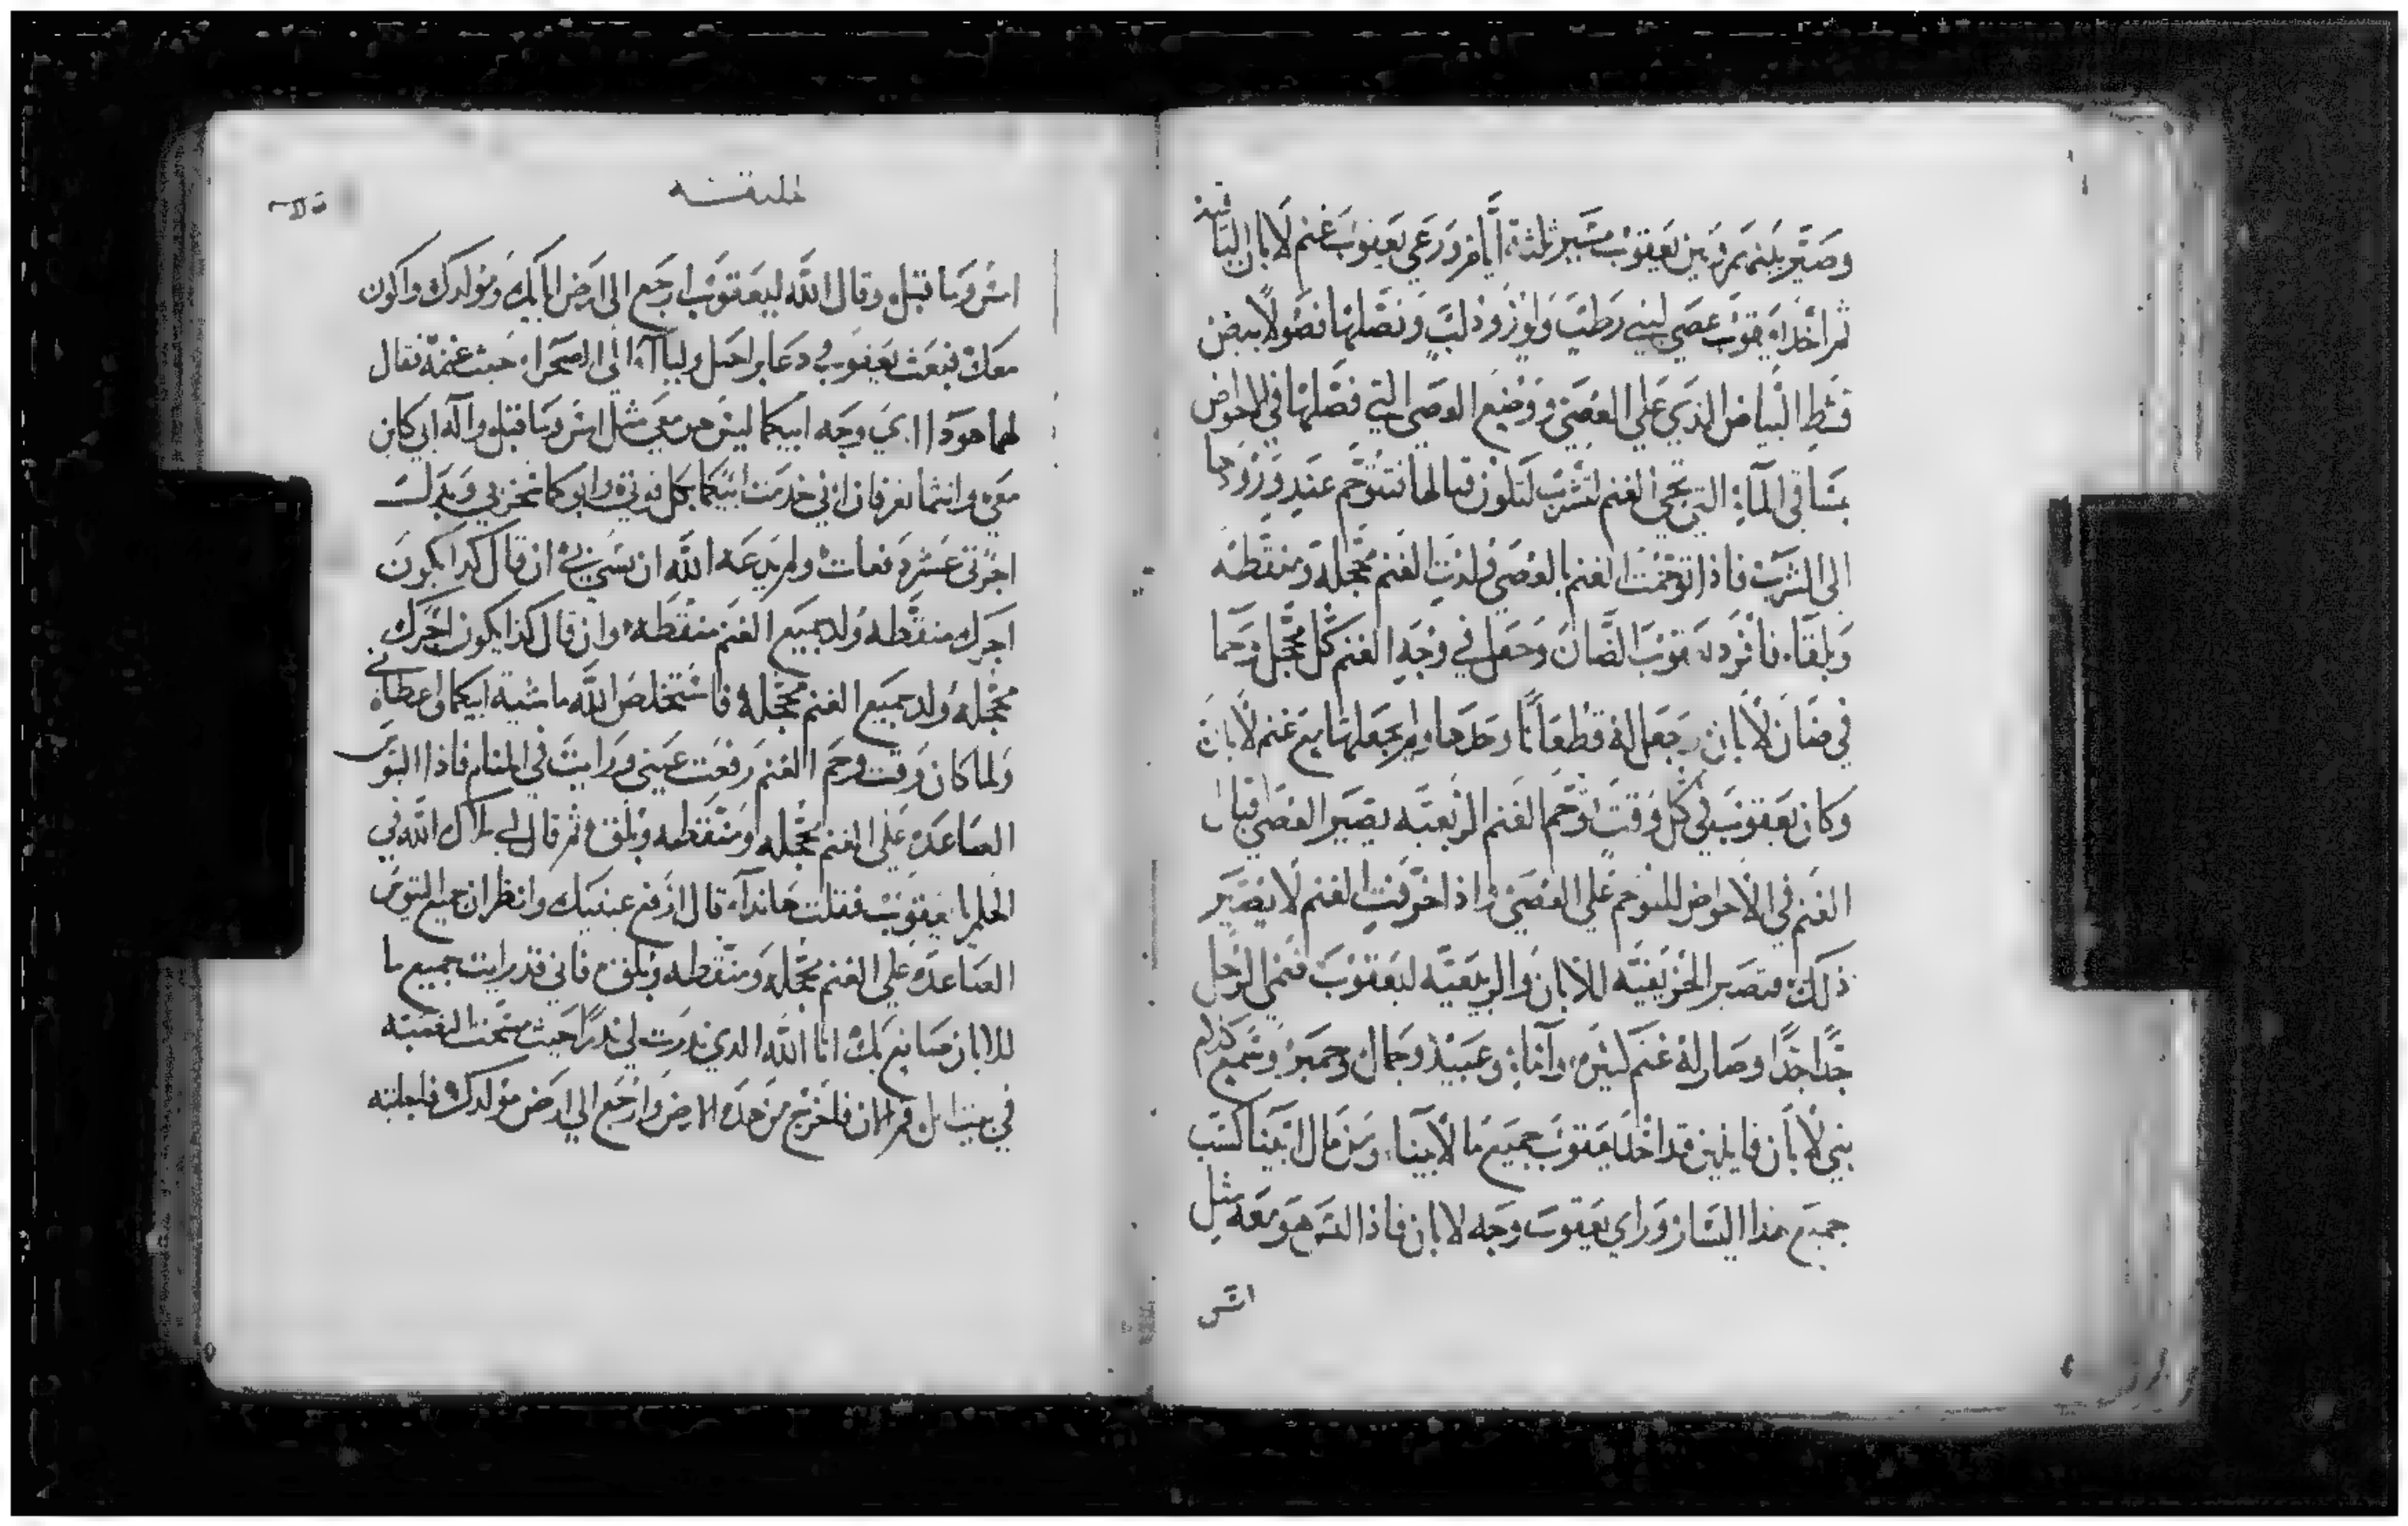 وصير بينهم وبين يعقوب مسير ثلثة ايام ورعى يعقوب غنم لابان الباقية
ثم اخذ يعقوب عصي لبني رطب ولوز ودلب وفصلها فصولا بيض
قشط البياض الذي على العصي ووضع العصي التي فصلها في الاحواض
مساقي الماء التي تجي الغنم لتشرب لتكون قبالها فتتوحم عند ورودها
الى الشرب فاذا توحمت الغنم بالعصي ولدت الغنم محجلة ومنقطة
وبلقاء فافرد يعقوب الضان وجعل في وجه الغنم كل محجل وحما
في ضان لابان وجعل له قطعانا وحدها ولم يجعلها مع غنم لابان
وكان يعقوب في كل وقت توحم الغنم الربعية يصير العصي قبال
الغنم في الاحواض للتوحم على العصي واذا خرفت الغنم لا يصير
ذلك فتصير الخريفية للابان والربيعية ليعقوب فنمى الرجل
جدا جدا وصار له غنم كثيرة واماء وعبيد وجمال وحمير وسمع كلام
بني لابان قايلين قد اخذ يعقوب جميع ما لابينا ومن مال ابينا كسب
جميع هذا اليسار وراى يعقوب وجه لابان فاذا ليس هو معه مثل
امس
الخليقة
امس وما قبله وقال الله ليعقوب ارجع الى ارض ابايك ومولدك واكون
معك فبعث يعقوب ودعا براحيل وليا الى الصحراء حيث غنمه فقال
لهما هوذا ارى وجه ابيكما ليس هو معي مثل امس وما قبله واله ابي كان
معي وانتما تعرفان اني خدمت ابيكما بكل قوتي وابوكما نحز بي وبدل
اجرتي عشر دفعات ولم يدعه الله ان يسي بي ان قال كذا يكون
اجرك منقطه ولد جميع الغنم منقطه وان قال كذا يكون اجرك
محجله ولد جميع الغنم محجله فاستخلص الله ماشية ابيكما واعطاني
ولما كان وقت وحم الغنم رفعت عيني ورايت في المنام فاذا التيوس
الصاعدة على الغنم محجله ومنقطه وبلق ثم قال لي ملاك الله في
الحلم يا يعقوب فقلت هانذا قال ارفع عينيك وانظر ان جميع التيوس
الصاعدة على الغنم محجله ومنقطه وبلق فاني قد رايت جميع ما
للابان صانع بك انا الله الذي ندرت لي ندرا حيث مسحت النصبه
في بيت ايل قم الان فاخرج من هذه الارض وارجع الى ارض مولدك فاجابته